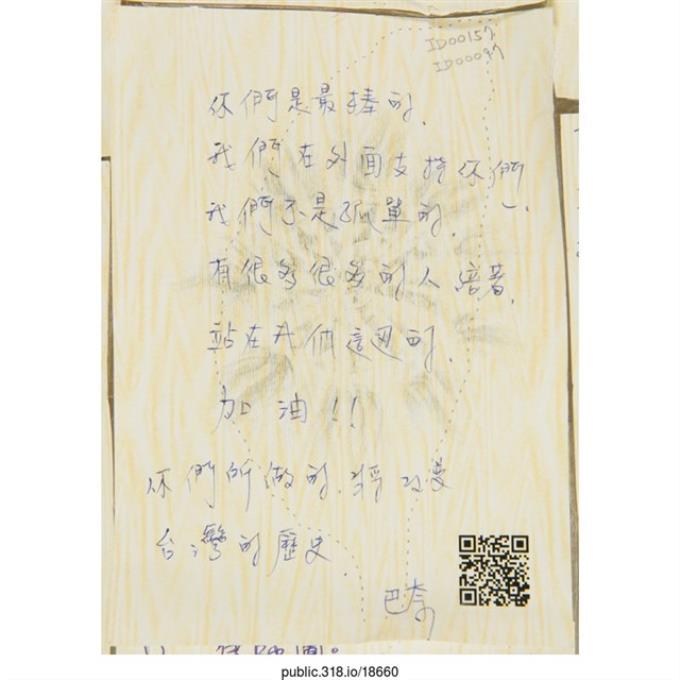 ID00157
ID00097
你們是最捧的.
我們在外面支持你們、
我們不是孤單的.
有很多很多的人 陪著,
站在我們這边的.
加 油 !!
你們所做的,將改变
台灣的歷史.
巴奈
public.318.io/18660